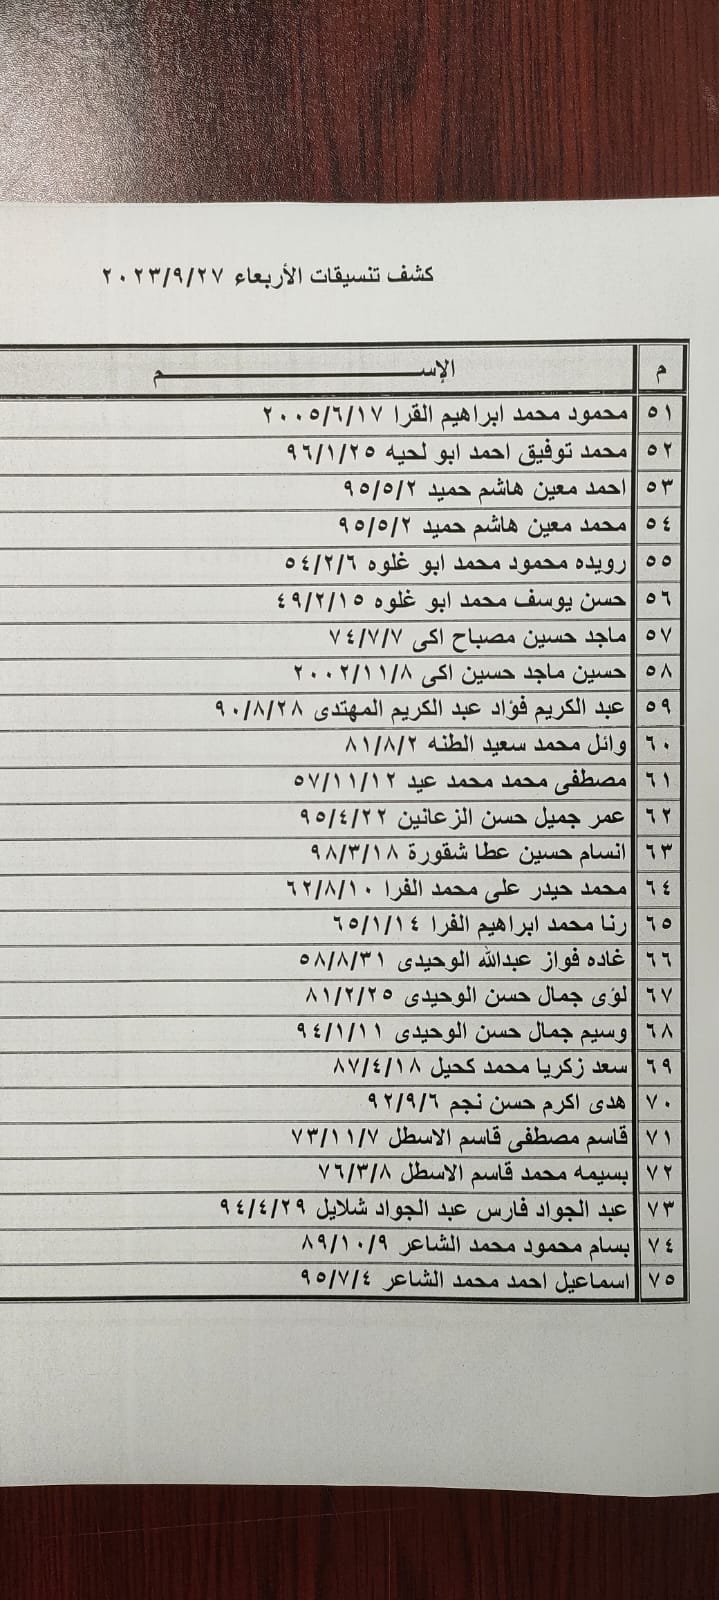 كشف تنسيقات الأربعاء ٢٠٢٣/٩/٢٧
م الإســـــــــــــــــــــــــــم
٥١ محمود محمد ابراهيم القرا ٢٠٠٥/٦/١٧
٥٢ محمد توفيق احمد ابو لحيه ٩٦/١/٢٥
٥٣ احمد معين هاشم حميد ٩٥/٥/٢
٥٤ محمد معين هاشم حميد ٩٥/٥/٢
٥٥ رويده محمود محمد ابو غلوه ٥٤/٢/٦
٥٦ حسن يوسف محمد ابو غلوه ٤٩/٢/١٥
٥٧ ماجد حسين مصباح اكى ٧٤/٧/٧
٥٨ حسين ماجد حسين اكى ٢٠٠٢/١١/٨
٥٩ عبد الكريم فؤاد عبد الكريم المهتدى ٩٠/٨/٢٨
٦٠ وائل محمد سعيد الطنه ٨١/٨/٢
٦١ مصطفى محمد محمد عيد ٥٧/١١/١٢
٦٢ عمر جميل حسن الزعانين ٩٥/٤/٢٢
٦٣ انسام حسين عطا شقورة ٩٨/٣/١٨
٦٤ محمد حيدر على محمد الفرا ٦٢/٨/١٠
٦٥ رنا محمد ابراهيم الفرا ٦٥/١/١٤
٦٦ غاده فواز عبدالله الوحيدى ٥٨/٨/٣١
٦٧ لؤى جمال حسن الوحيدى ٨١/٢/٢٥
٦٨ وسيم جمال حسن الوحيدى ٩٤/١/١١
٦٩ سعد زكريا محمد كحيل ٨٧/٤/١٨
٧٠ هدى اكرم حسن نجم ٩٢/٩/٦
٧١ قاسم مصطفى قاسم الاسطل ٧٣/١١/٧
٧٢ بسيمه محمد قاسم الاسطل ٧٦/٣/٨
٧٣ عبد الجواد فارس عبد الجواد شلايل ٩٤/٤/٢٩
٧٤ بسام محمود محمد الشاعر ٨٩/١٠/٩
٧٥ اسماعيل احمد محمد الشاعر ٩٥/٧/٤